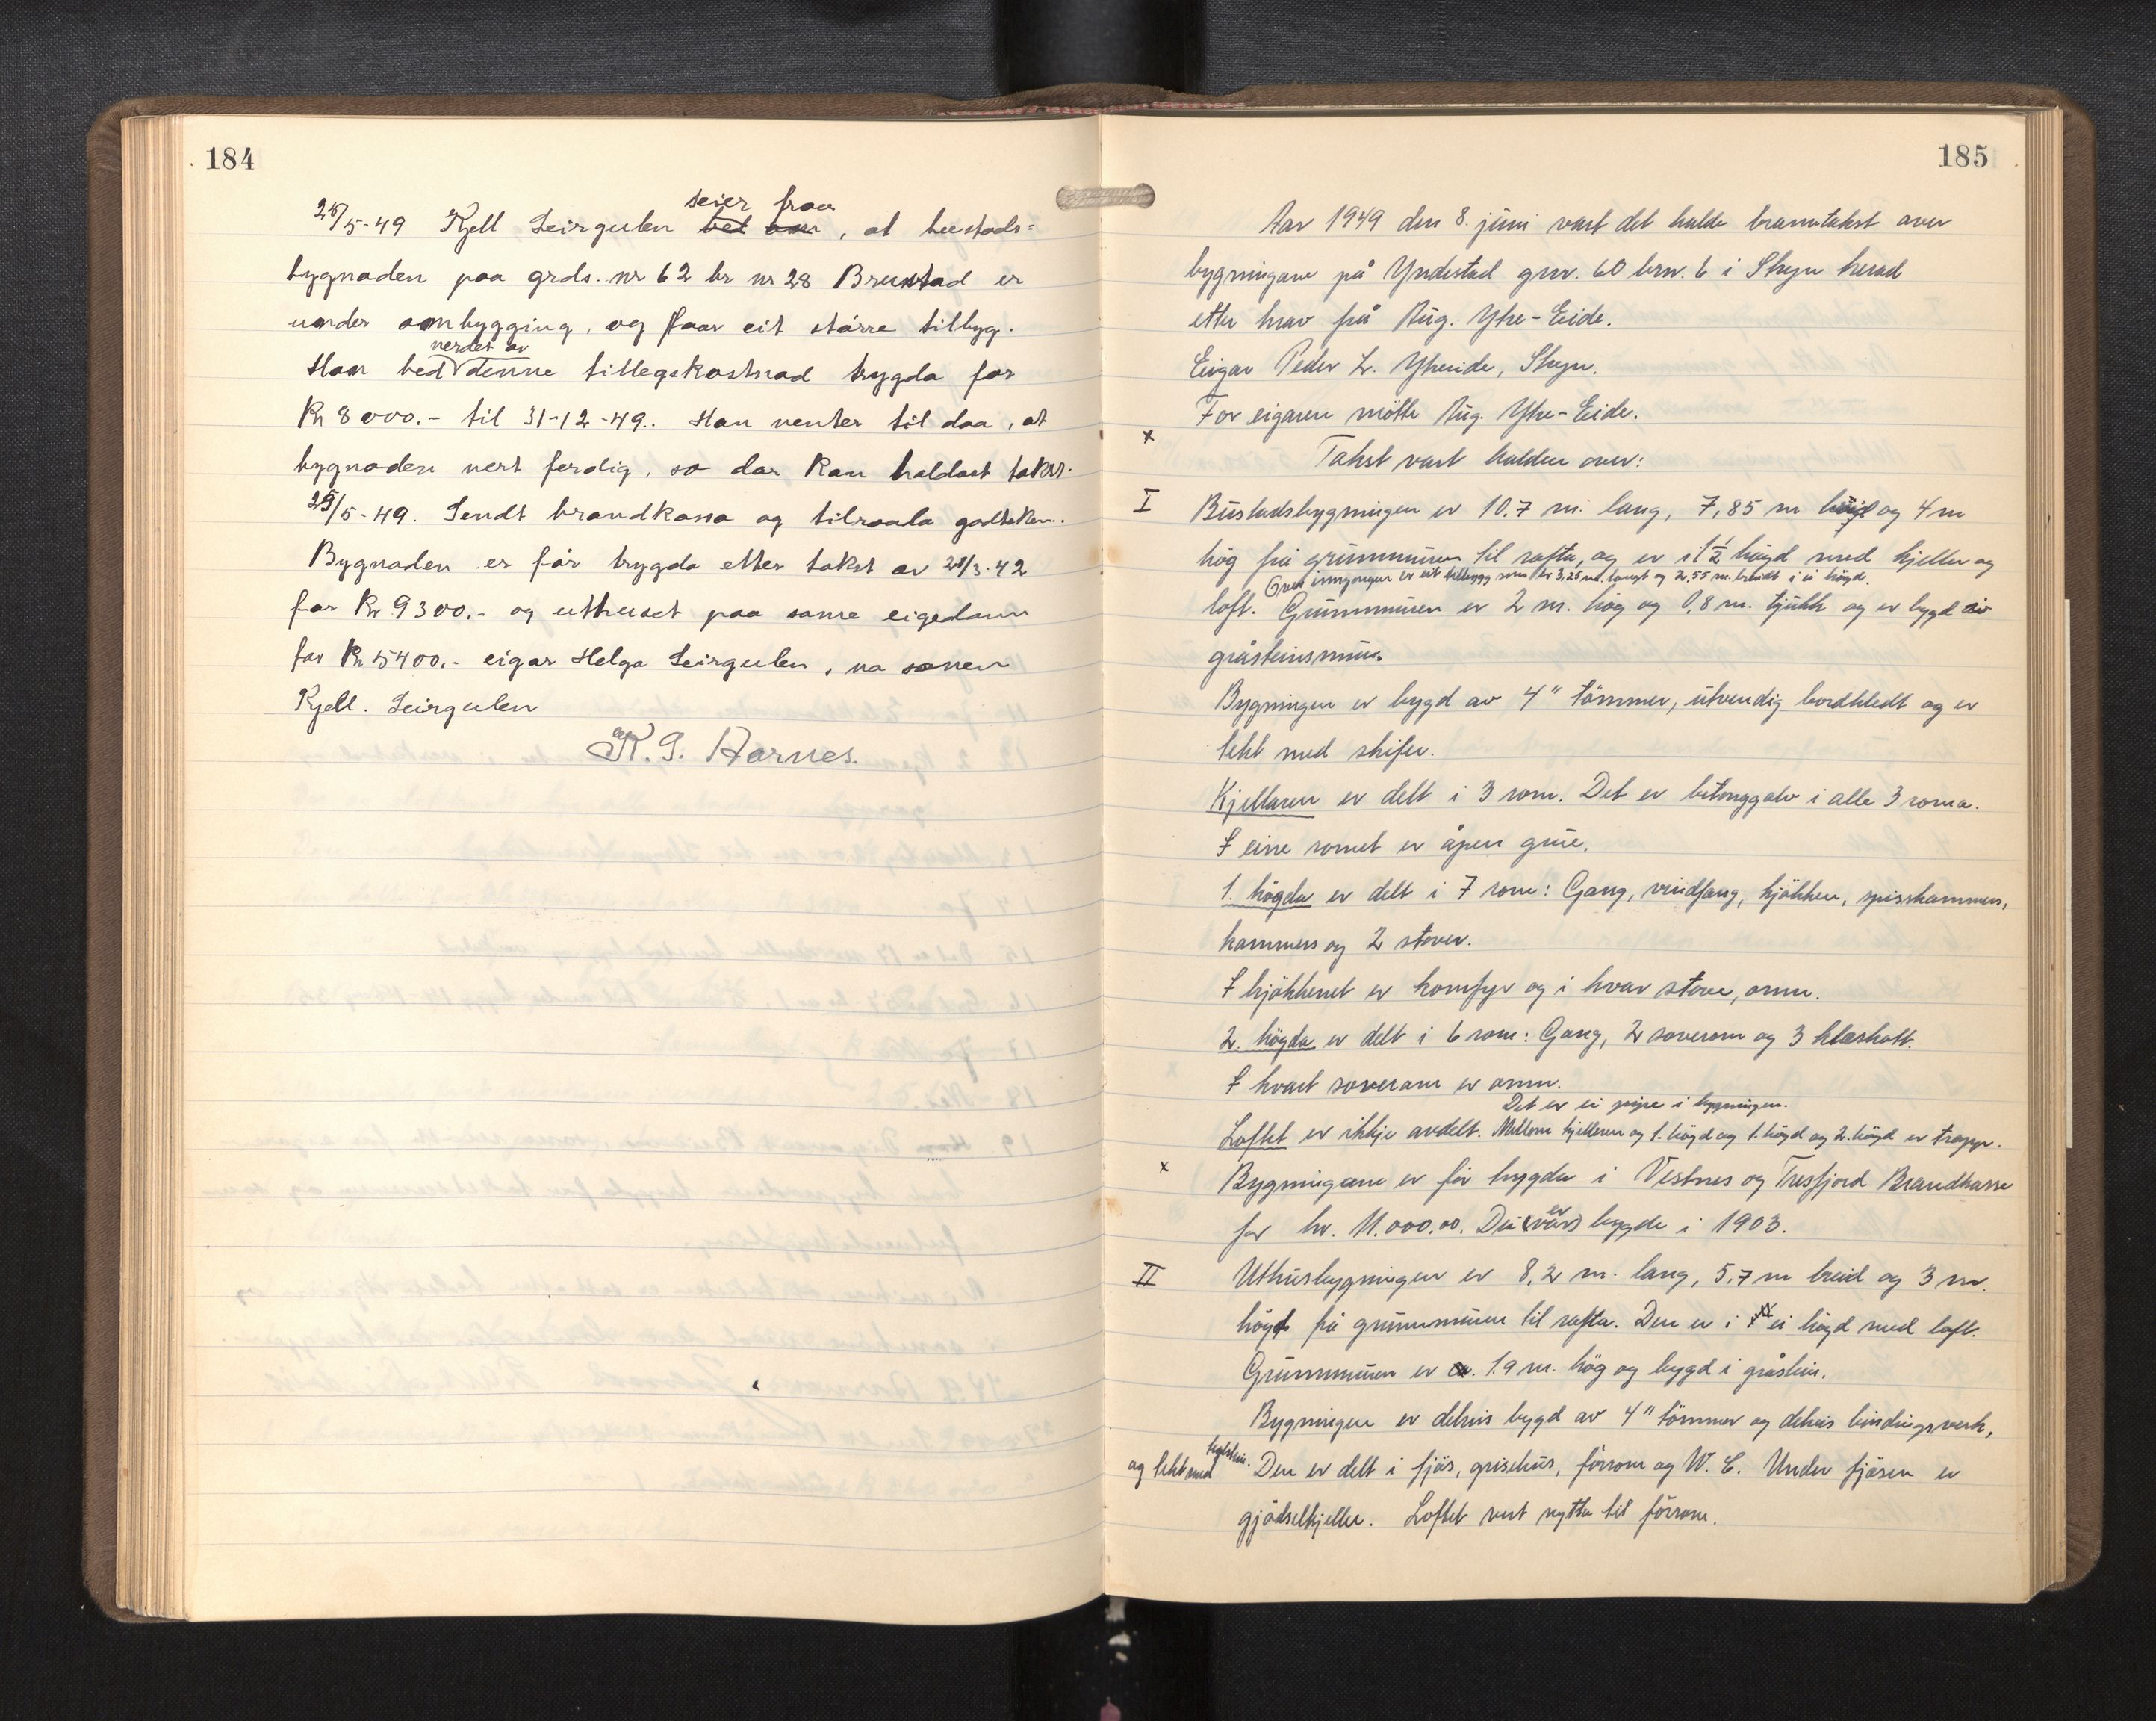 184
28/5-49 Kjell Leirgulen bed om seier fraa, at bustads=
bygnaden paa grds. nr 62 br nr 28 Brustad er
under ombygging, og faar eit større tilbyg.
Han bed verdet av denne tillegskostnad trygda for
Kr 8000.- til 31-12-49.. Han venter til daa, at
bygnaden vert ferdig, so dar kan haldast takst.
28/5-49. Sendt brandkassa og tilraala godtaken.
Bygnaden er før trygda etter takst av 28/3-42
for Kr 9300.- og uthuset paa same eigedom
for Kr 5400.- eigar Helga Leirgulen, no sonen
Kjell. Leirgulen
K. G. Aarnes.
185
Aar 1949 den 8. juni vart det halde branntakst over
bygningane på Yndestad gnr. 60 brn. 6 i Stryn herad
etter krav frå Aug. Ytre-Eide.
Eigar Peder L. Ytreeide, Stryn.
For eigaren møtte Aug. Ytre-Eide.
x
Takst vart halden over:
I Bustadsbygningen er 10.7 m. lang, 7,85 m og 4 m
høg frå grunnmuren til rafta, og er i 1 1/2 høgd med kjellar og
Over inngongen er eit tillegg som er 3,25 m. langt og 2,55 m. breidt i ei høgd.
loft. Grunnmuren er 2 m. høg og 0,8 m. tjukk og er bygd av
gråsteinsmur.
Bygningen er bygd av 4" tømmer, utvendig bordkledt og er
tekt med skifer.
Kjellaren er delt i 3 rom. Det er betonggolv i alle 3 roma.
I eine romet er åpen grue.
1. høgda er delt i 7 rom: Gang, vindfang, kjøkken, spisskammers,
kammers og 2 stover.
I kjøkkenet er komfyr og i hvar stove, omn.
2. høgda er delt i 6 rom: Gang, 2 soverom og 3 kleskott.
I hvart soverom er omn.
Det er ei pipe i bygningen.
Loftet er ikkje avdelt. Mellom kjelleren og 1. høgd og 1. høgd og 2. høgd er trapp.
x Bygningane er før trygda i Vestnes og Tresfjord Brandkasse
for kr. 11.000.00. Dei (vart) er bygde i 1903.
II Uthusbygningen er 8,2 m. lang, 5,7 m breid og 3 m.
høgd frå grunnmuren til rafta. Den er i ei høgd med loft.
Grunnmuren er ca. 1.9 m. høg og bygd i gråstein.
Bygningen er delvis bygd av 4" tømmer og delvis bindingsverk,
og tekt med teglstein. Den er delt i fjøs, grisehus, fôrrom og W. C. Under fjøsen er
gjødselkjeller. Loftet vert nytta til fôrrom.